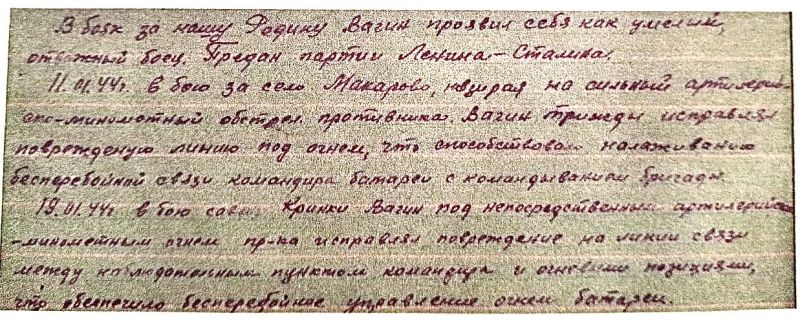 В боях за нашу Родину Вагин проявил себя как умелый,
отважный боец. Предан партии Ленина-Сталина.
11.01.44г. в бою за село Макарово, невзирая на сильный артилерий-
ско-минометный обстрел противника. Вагин трижды исправлял
поврежденую линию под огнем, что способствовало налаживанию
бесперебойной связи командира батареи с командыванием бригады
19.01.44г. в бою Кринки Вагин под непосредственным артилерийско
-минометным огнем пр-ка исправлял повреждение на линии связи
между наблюдательным пунктом командира и огневыми позициями,
что обеспечило бесперебойное управление огнем батареи.